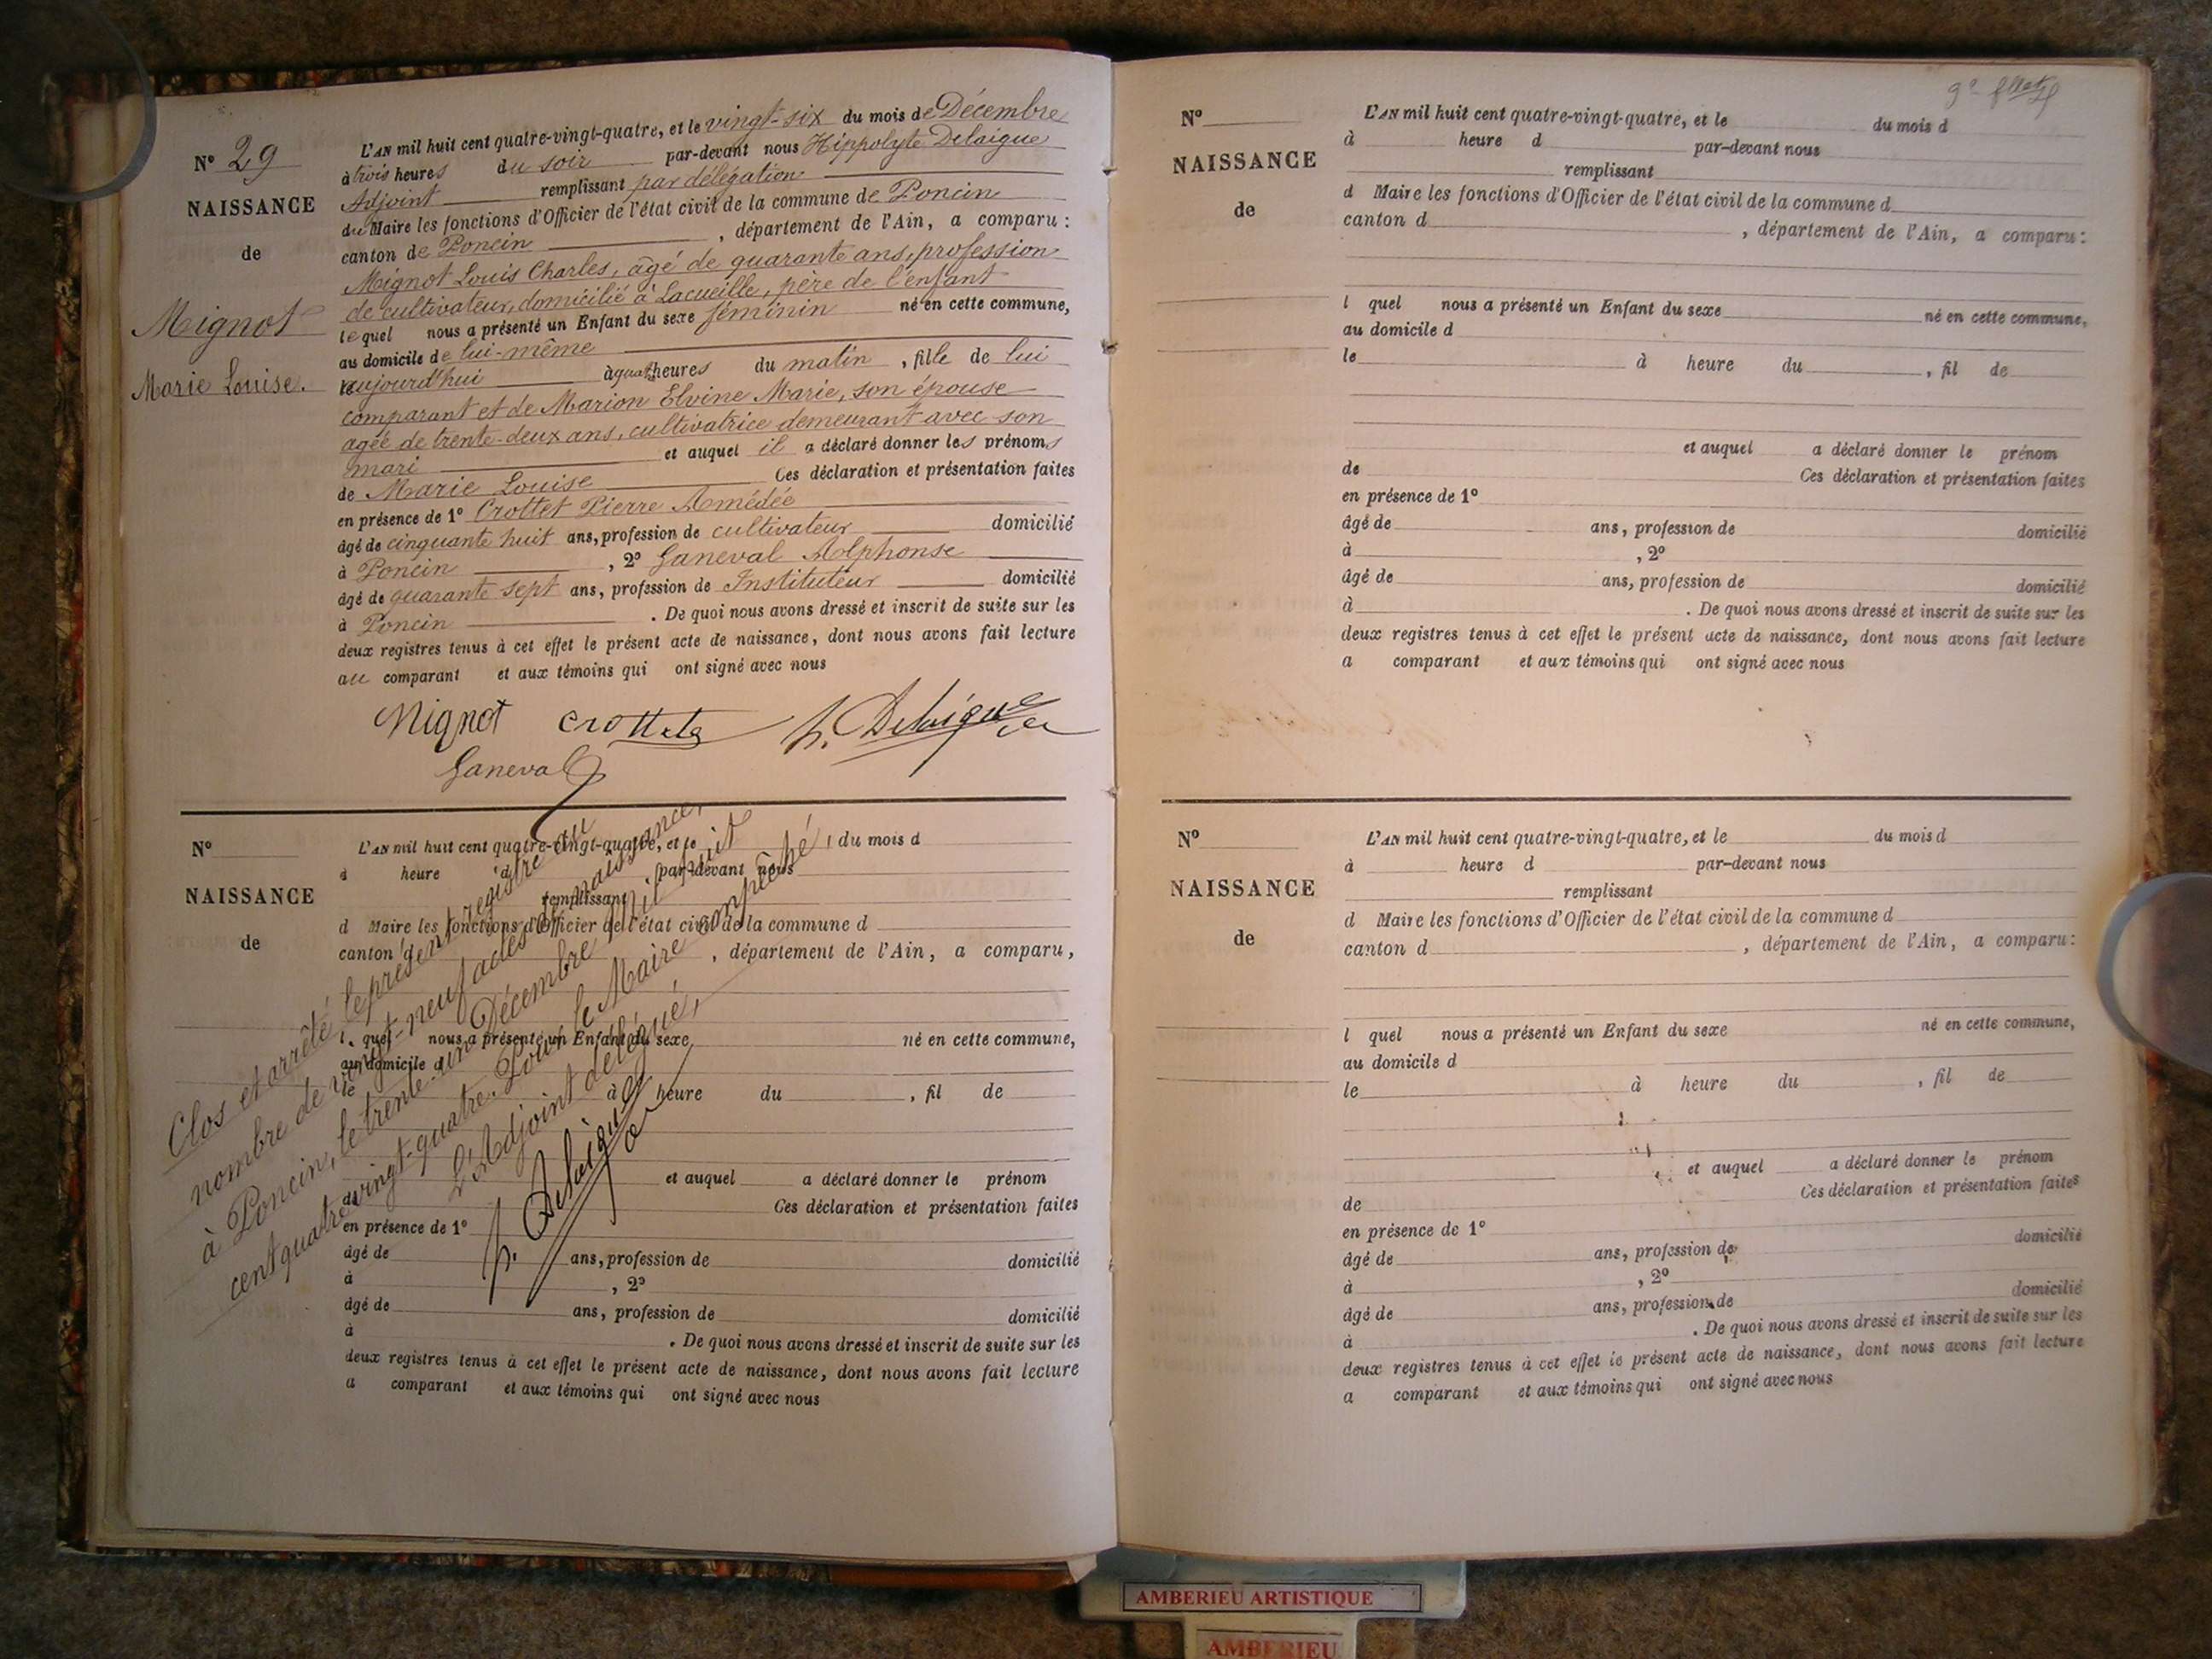 N° 29
NAISSANCE
de
Mignot
Marie Louise.
L'AN mil huit cent quatre-vingt-quatre, et le vingt-six du mois de Décembre
à trois heures du soir par-devant nous Hippolyte Delaigue
Adjoint remplissant par délégation
du Maire les fonctions d'Officier de l'état civil de la commune de Poncin
canton de Poncin, département de l'Ain, a comparu :
Mignot Louis Charles, âgé de quarante ans, profession
de cultivateur, domicilié à Lacueille, père de l'enfant
lequel nous a présenté un Enfant du sexe féminin né en cette commune,
au domicile de lui-même
aujourd'hui à quatre heures du matin, fille de lui
comparant et de Marion Elvine Marie, son épouse
agée de trente-deux ans, cultivatrice demeurant avec son
mari et auquel il a déclaré donner les prénoms
de Marie Louise Ces déclaration et présentation faites
en présence de 1° Crottet Pierre Amédée
âgé de cinquante huit ans, profession de cultivateur domicilié
à Poncin, 2° Ganeval Alphonse
âgé de quarante sept ans, profession de Instituteur domicilié
à Poncin. De quoi nous avons dressé et inscrit de suite sur les
deux registres tenus à cet effet le présent acte de naissance, dont nous avons fait lecture
au comparant et aux témoins qui ont signé avec nous
Mignot Crottet h. Delaigue
Ganeval
N°
NAISSANCE
de
L'AN mil huit cent quatre-vingt-quatre, et le du mois d
à heure d par-devant nous
remplissant
d Maire les fonctions d'Officier de l'état civil de la commune d
canton d, département de l'Ain, a comparu,
l quel nous a présenté un Enfant du sexe né en cette commune,
au domicile d
le à heure du, fil de
et auquel a déclaré donner le prénom
de Ces déclaration et présentation faites
en présence de 1°
âgé de ans, profession de domicilié
à, 2°
âgé de ans, profession de domicilié
à. De quoi nous avons dressé et inscrit de suite sur les
deux registres tenus à cet effet le présent acte de naissance, dont nous avons fait lecture
a comparant et aux témoins qui ont signé avec nous
Clos et arrêté, le présent registre au
nombre de vingt-neuf actes de naissance,
à Poncin, le trente-un Décembre mil huit
cent quatre-vingt-quatre. Pour le Maire empêché,
L'Adjoint délégué,
h. Delaigue
N°
NAISSANCE
de
L'AN mil huit cent quatre-vingt-quatre, et le du mois d
à heure d par-devant nous
remplissant
d Maire les fonctions d'Officier de l'état civil de la commune d
canton d, département de l'Ain, a comparu:
l quel nous a présenté un Enfant du sexe né en cette commune,
au domicile d
le à heure du, fil de
et auquel a déclaré donner le prénom
de Ces déclaration et présentation faites
en présence de 1°
âgé de ans, profession de domicilié
à, 2°
âgé de ans, profession de domicilié
à. De quoi nous avons dressé et inscrit de suite sur les
deux registres tenus à cet effet le présent acte de naissance, dont nous avons fait lecture
a comparant et aux témoins qui ont signé avec nous
N°
NAISSANCE
de
L'AN mil huit cent quatre-vingt-quatre, et le du mois d
à heure d par-devant nous
remplissant
d Maire les fonctions d'Officier de l'état civil de la commune d
canton d, département de l'Ain, a comparu:
l quel nous a présenté un Enfant du sexe né en cette commune,
au domicile d
le à heure du, fil de
et auquel a déclaré donner le prénom
de Ces déclaration et présentation faites
en présence de 1°
âgé de ans, profession de domicilié
à, 2°
âgé de ans, profession de domicilié
à. De quoi nous avons dressé et inscrit de suite sur les
deux registres tenus à cet effet le présent acte de naissance, dont nous avons fait lecture
a comparant et aux témoins qui ont signé avec nous
AMBERIEU ARTISTIQUE
AMBERIEU